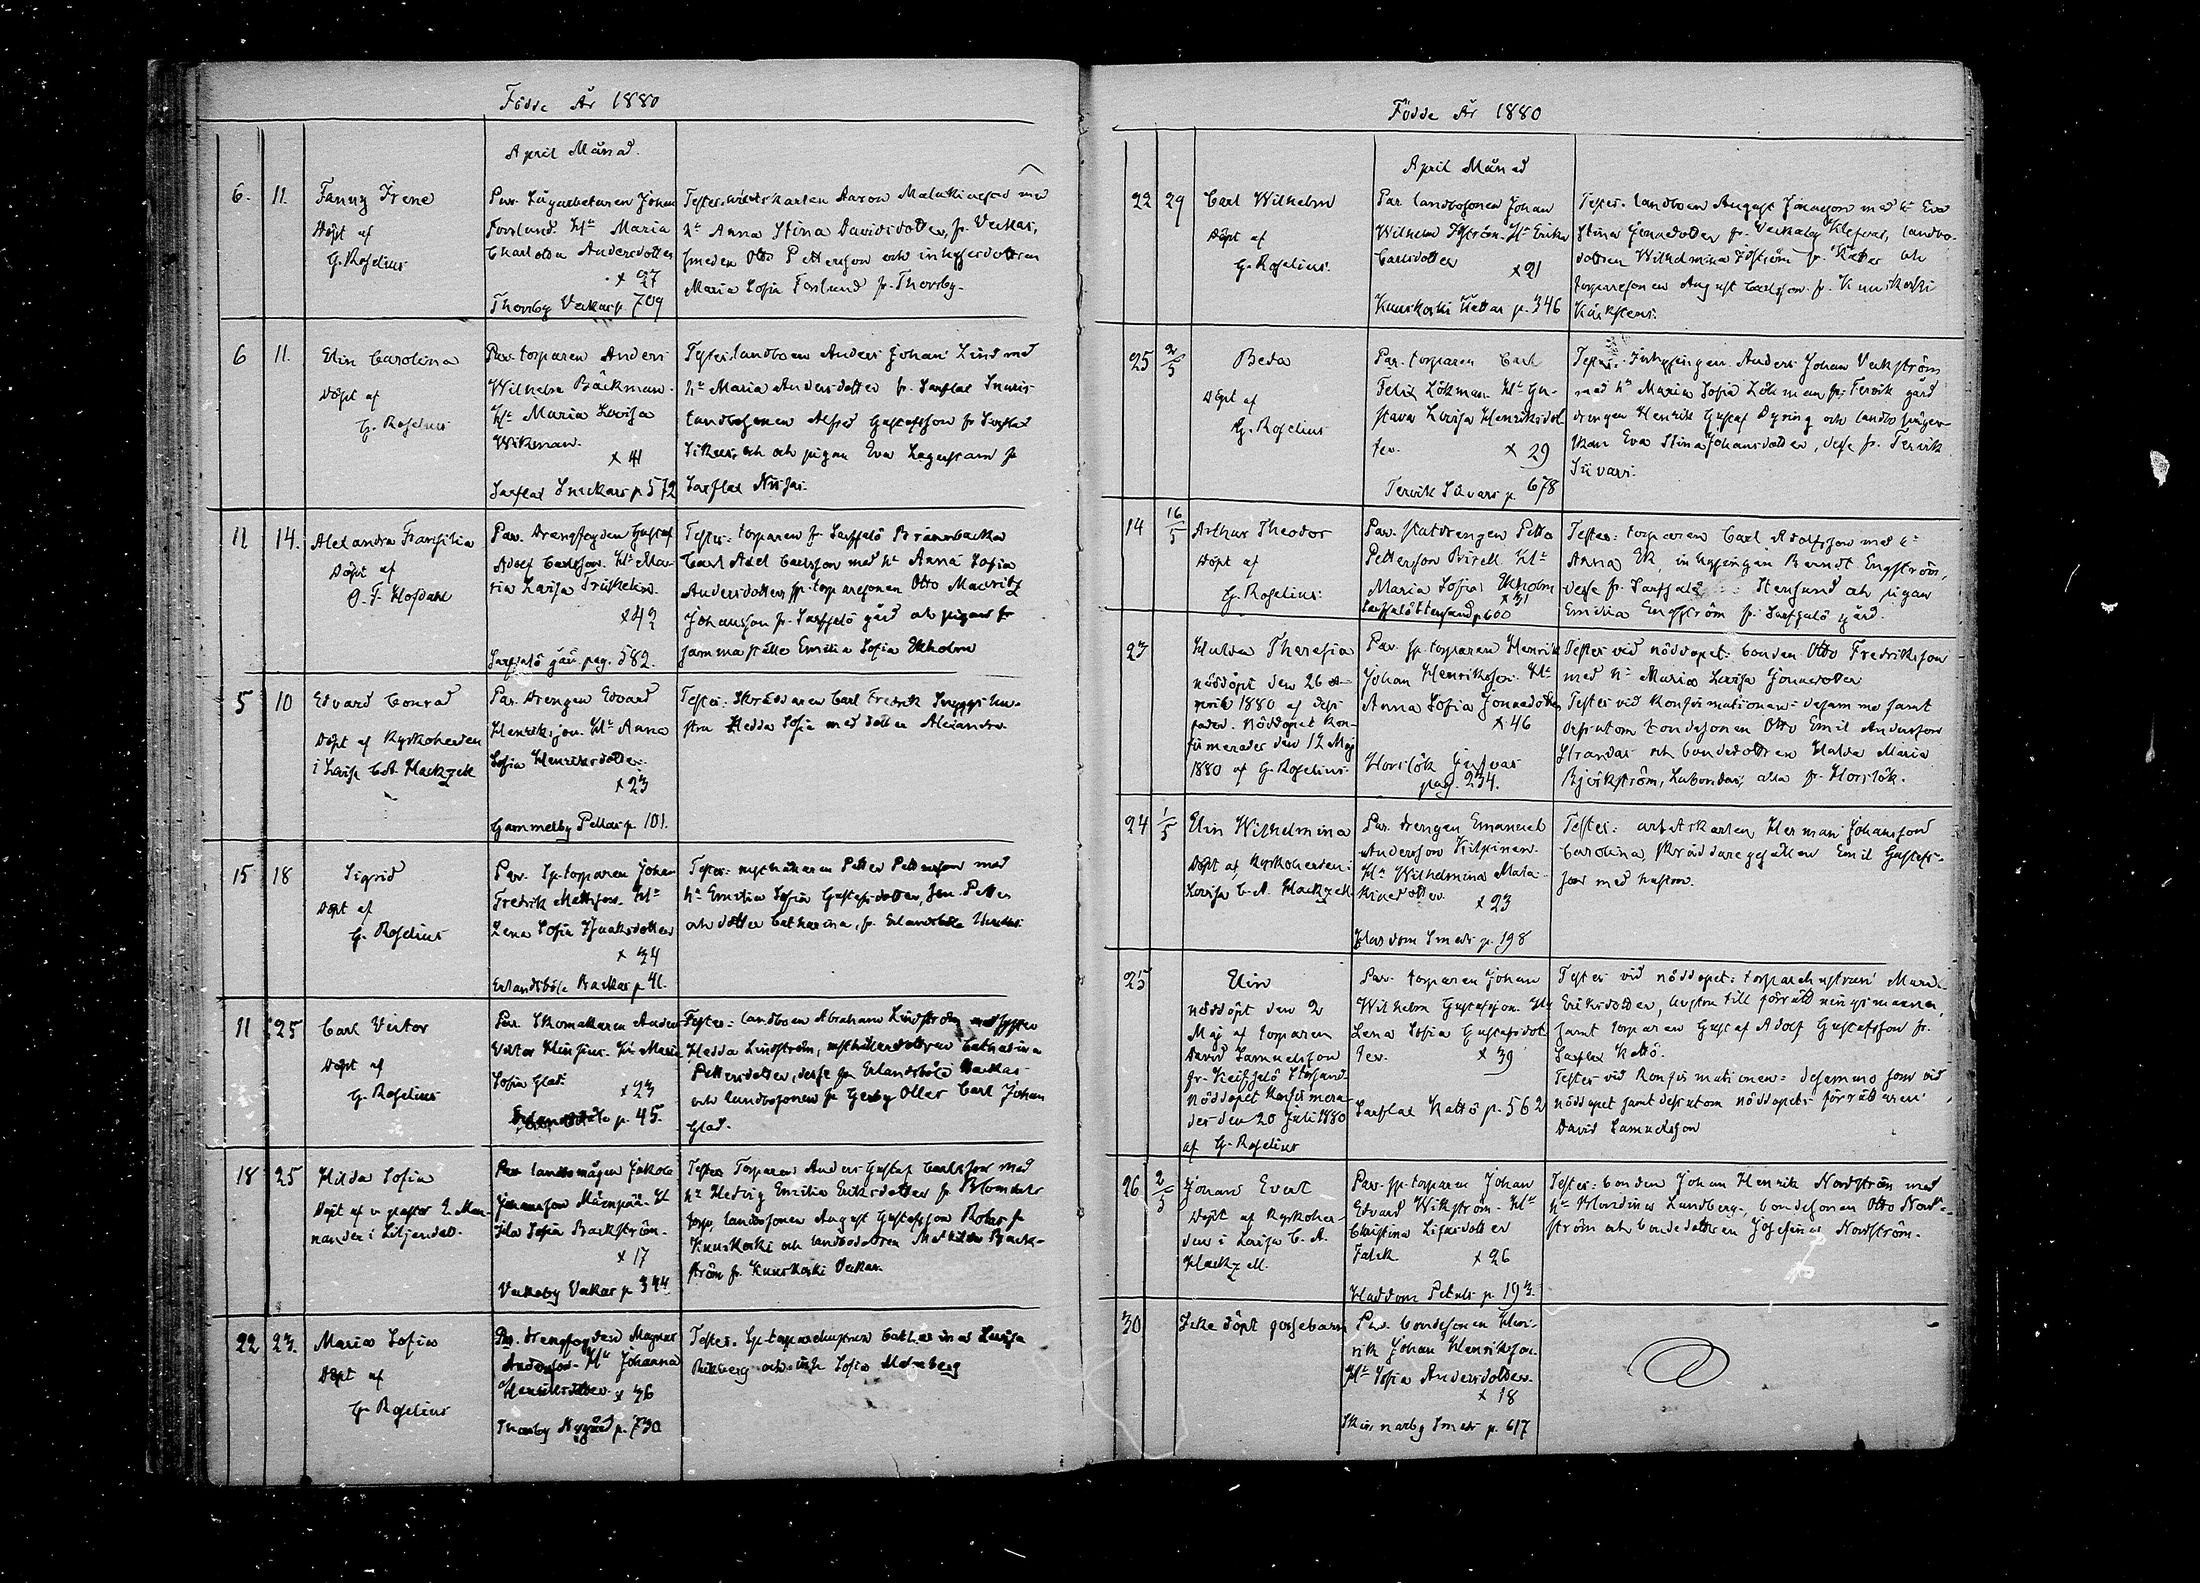 Födde År 1880
April Månad.
6. 11. Fanny Irene
Döpt af
G. Roselius
Par. Sågarbetaren Johan
Forslund. H:u Maria
Charlotta Andersdotter
x 27
Thorsby Veckas p. 709
Testes. Arbetskarlen Aaron Malakiasson med
h:u Anna Stina Davidsdotter, fr. Veckas,
smeden Otto Pettersson och inhysesdottren
Maria Sofia Forslund fr. Thorsby.
6 11. Elin Carolina
Döpt af
G. Roselius
Par. torparen Anders
Wilhelm Bäckman.
H:u Maria Lovisa
Wikman.
x 41
Sarflax Snickars p 572
Testes. landboen Anders Johan Lind med
h:u Maria Andersdotter fr. Sarflax
landbosonen Alfred Gustafsson fr Sarflax
och pigan Eva Lagerstam fr
Sarflax Nissas.
11 14. Alexandra Fransilia
Döpt af
O. F. Hofdahl
Par. Drängfogden Gustaf
Adolf Carlsson. H:u Ma-
ria Lovisa
x 42
Sarfsalö gård pag. 582.
Testes: torparen fr. Sarfsalö Brännbacka
Carl Axel Carlsson med h:u Anna Sofia
Andersdotter, sp. torparesonen Otto Mauritz
Johansson fr. Sarfsalö gård och pigan fr
samma ställe Emilia Sofia Ekholm
5 10 Edvard Conrad
Döpt af Kyrkoherden
i Lovisa C. A. Hackzell
Par. Drengen Edvard
Henriksson. H:u Anna
Sofia Henriksdotter.
x 23
Gammelby Pellas p. 101.
Testes: Skräddaren Carl Fredrik hu-
stru Hedda Sofia med dotter Alexandra.
15 18 Sigrid
Döpt af
G. Roselius
Par. Sp. torparen Johan
Fredrik Mattsson. H:u
Lena Sofia Isaksdotter
x 34
Erlandsböle Backas p 41.
Testes: nysthållaren Petter Pettersson med
h:u Emilia Sofia Gustafsdotter, son Petter
och dotter Catharina, fr. Erlandsböle
11 25 Carl Victor
Döpt af
G. Roselius
Par. Skomakaren Anders
Victor H:u Maria
Sofia Glad.
x 23
Erlandsböle p. 45.
Testes: landboen Abraham Lindström med syster
Hedda Lindström, Catharina
Pettersdotter, desse fr Erlandsböle Backas
och landbosonen fr Gerby Ollas Carl Johan
Glad.
18 25 Hilda Sofia
Döpt af v. pastor E. Men-
nander i Liljendal.
Par landbomågen Jakob
Johansson Mäenpää. H
Ida Sofia Backström.
x 17
Veckoby Veckas p 344
Testes Torparen Anders Gustaf Carlsson med
h:u Hedvig Emilia Eriksdotter fr. Blomdals
torp, landbosonen August Gustafsson Robas fr
Kuuskoski och landbodottren Mathilda Back-
ström fr. Kuuskoski Veckas.
22 23. Maria Sofia
Döpt af
G. Roselius
Par. drengfogden Magnus
Andersson. H:u Johanna
Henriksdotter x 36
Thorsby Nygård p. 730
Testes. Sp. torparehustrun Catharina Lovisa
och Sofia
Födde År 1880
April Månad
22 29 Carl Wilhelm
Döpt af
G. Roselius.
Par landbosonen Johan
Wilhelm Idström. H:u Erika
Carlsdotter
x 21
Kuuskoski Kettas p. 346
Testes. landboen August Jönasson med h:u Eva
Stina Jönsdotter fr. Veckoby Klefvas, landbo-
dottren Wilhelmina Idström fr. Kettas och
torparesonen August Carlsson fr. Kuuskoski
25 2/5 Beda
Döpt af
G. Roselius
Par. torparen Carl
Felix Lökman H:u Gu-
stava Lovisa Henriksdot
ter.
x 29
Tervik Siivars p. 678
Testes. Inhysingen Anders Johan Veckström
med h:u Maria Sofia Lökman fr. Tervik gård
drengen Henrik Gustaf Dyring och landbosyter-
skan Eva Stina Johansdotter, desse fr. Tervik
Siivars.
14 16/5 Arthur Theodor
Döpt af
G. Roselius.
Par. statdrengen Petter
Pettersson Birell H:u
Maria Sofia Ekholm
x 31
Sarfsalö Stensund p. 600
Testes: torparen Carl Adolfsson med h:u
Anna Ek, inhysingen Berndt Engström,
desse fr. Sarfsalö Stensund och pigan
Emilia Engström fr. Sarfsalö gård.
23 Hulda Theresia
nöddöpt den 26 A-
pril 1880 af dess
fader. Nöddopet kon-
firmerades den 12 Maj
1880 af G. Roselius.
Par. sp. torparen Henrik
Johan Henriksson. H:u
Anna Sofia Jönsdotter
x 46
Horslök Gusvas
pag. 234.
Testes vid nöddopet: bonden Otto Fredriksson
med h:u Maria Lovisa Jönsdotter
Testes vid konfirmationen: desamme samt
dessutom bondesonen Otto Emil Andersson
Strandas och bondedottren Hulda Maria
Björkström, Labondas, alla fr. Horslök.
24 1/5 Elin Wilhelmina
Döpt af Kyrkoherden i
Lovisa C. A. Hackzell
Par. drengen Emanuel
Andersson Kilpinen.
H:u Wilhelmina Mala-
kiasdotter.
x 23
Hardom Smeds p. 198
Testes: arbetskarlen Herman Johansson
Carolina, Skräddaregesällen Emil Gustafs-
son med hustru.
25 Elin
nöddöpt den 2
Maj af torparen
David Samuelsson
fr. Keitsalö Storsand.
Nöddopet konfirmera-
des den 20 Juli 1880
af G. Roselius
Par. torparen Johan
Wilhelm Gustafsson. H:u
Lena Sofia Gustafsdot
ter.
x 39
Sarflax Kattö p. 562
Testes vid nöddopet: torparehustrun
Eriksdotter, hustru till förrättningsmannen,
samt torparen Gustaf Adolf Gustafsson fr.
Sarflax Kattö.
Testes vid konfirmationen: desamme som vid
nöddopet samt dessutom nöddopets förrättaren
David Samuelsson
26 2/5 Johan Evert
Döpt af Kyrkoher-
den i Lovisa C. A.
Hackzell.
Par. sp. torparen Johan
Edvard Wikström. H:u
Christina Lisasdotter
Falck
x 26
Haddom Petas p. 193.
Testes: bonden Johan Henrik Nordström med
h:u Mordina Lundberg, bondesonen Otto Nord-
ström och bondedottren Josefina Nordström.
30 Icke döpt gossebarn
Par. bondesonen Hen-
rik Johan Henriksson.
H:u Sofia Andersdotter.
x 18
Skinnarby Smeds p. 617